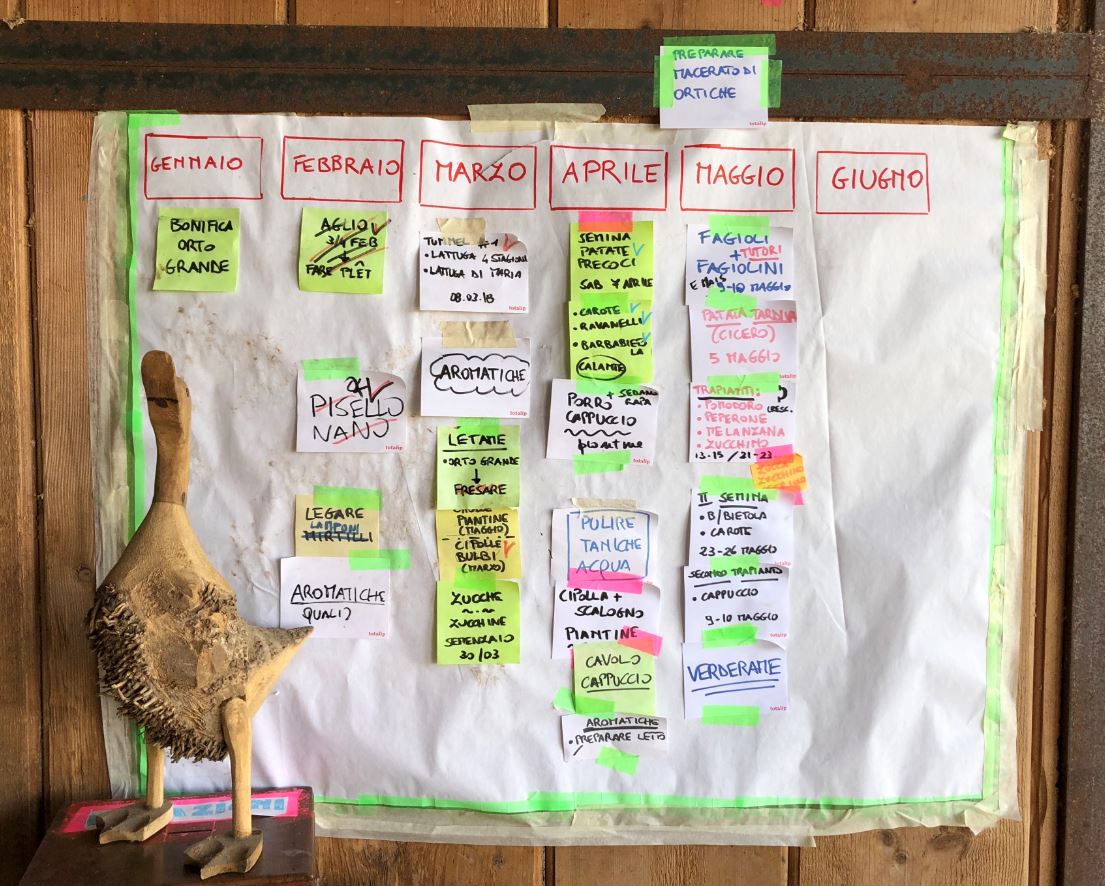 PREPARARE
MACERATO DI
ORTICHE
totalip
GENNAIO
BONIFICA
ORTO
GRANDE
FEBBRAIO
AGLIO
3/4 FEB
FARE PLÊT
OK
PISELLO
NANO
totalip
LEGARE
LAMPONI
MIRTILLI
AROMATICHE
QUALI?
totalip
MARZO
TUNNEL #1
• LATTUGA 4 STAGIONI
• LATTUGA DI MARIA
08.03.18
totalip
AROMATICHE
totalip
LETAME
• ORTO GRANDE
FRESARE
PIANTINE
(MAGGIO)
- CIPOLLE
BULBI
(MARZO)
ZUCCHE
ZUCCHINE
SEMENZAIO
30/03
APRILE
SEMINA
PATATE
PRECOCI
SAB 7 APRILE
• CAROTE
• RAVANELLI
• BARBABIETO
LA
CALANTE
PORRO + SEDANO
RAPA
CAPPUCCIO
piantine
totalip
PULIRE
TANICHE
ACQUA
CIPOLLA +
SCALOGNO
PIANTINE
CAVOLO
CAPPUCCIO
AROMATICHE
• PREPARARE LETTO
MAGGIO
FAGIOLI
+ TUTORI
FAGIOLINI
E MAIS 9-10 MAGGIO
PATATA TARDIVA
(CICERO)
5 MAGGIO
totalip
TRAPIANTI:
• POMODORO
• PEPERONE
• MELANZANA
• ZUCCHINO
13-15 / 21-23
ZUCCHINO
II SEMINA
• B/BIETOLA
• CAROTE
23-26 MAGGIO
SECONDO TRAPIANTO
• CAPPUCCIO
9-10 MAGGIO
totalip
VERDERAME
totalip
GIUGNO